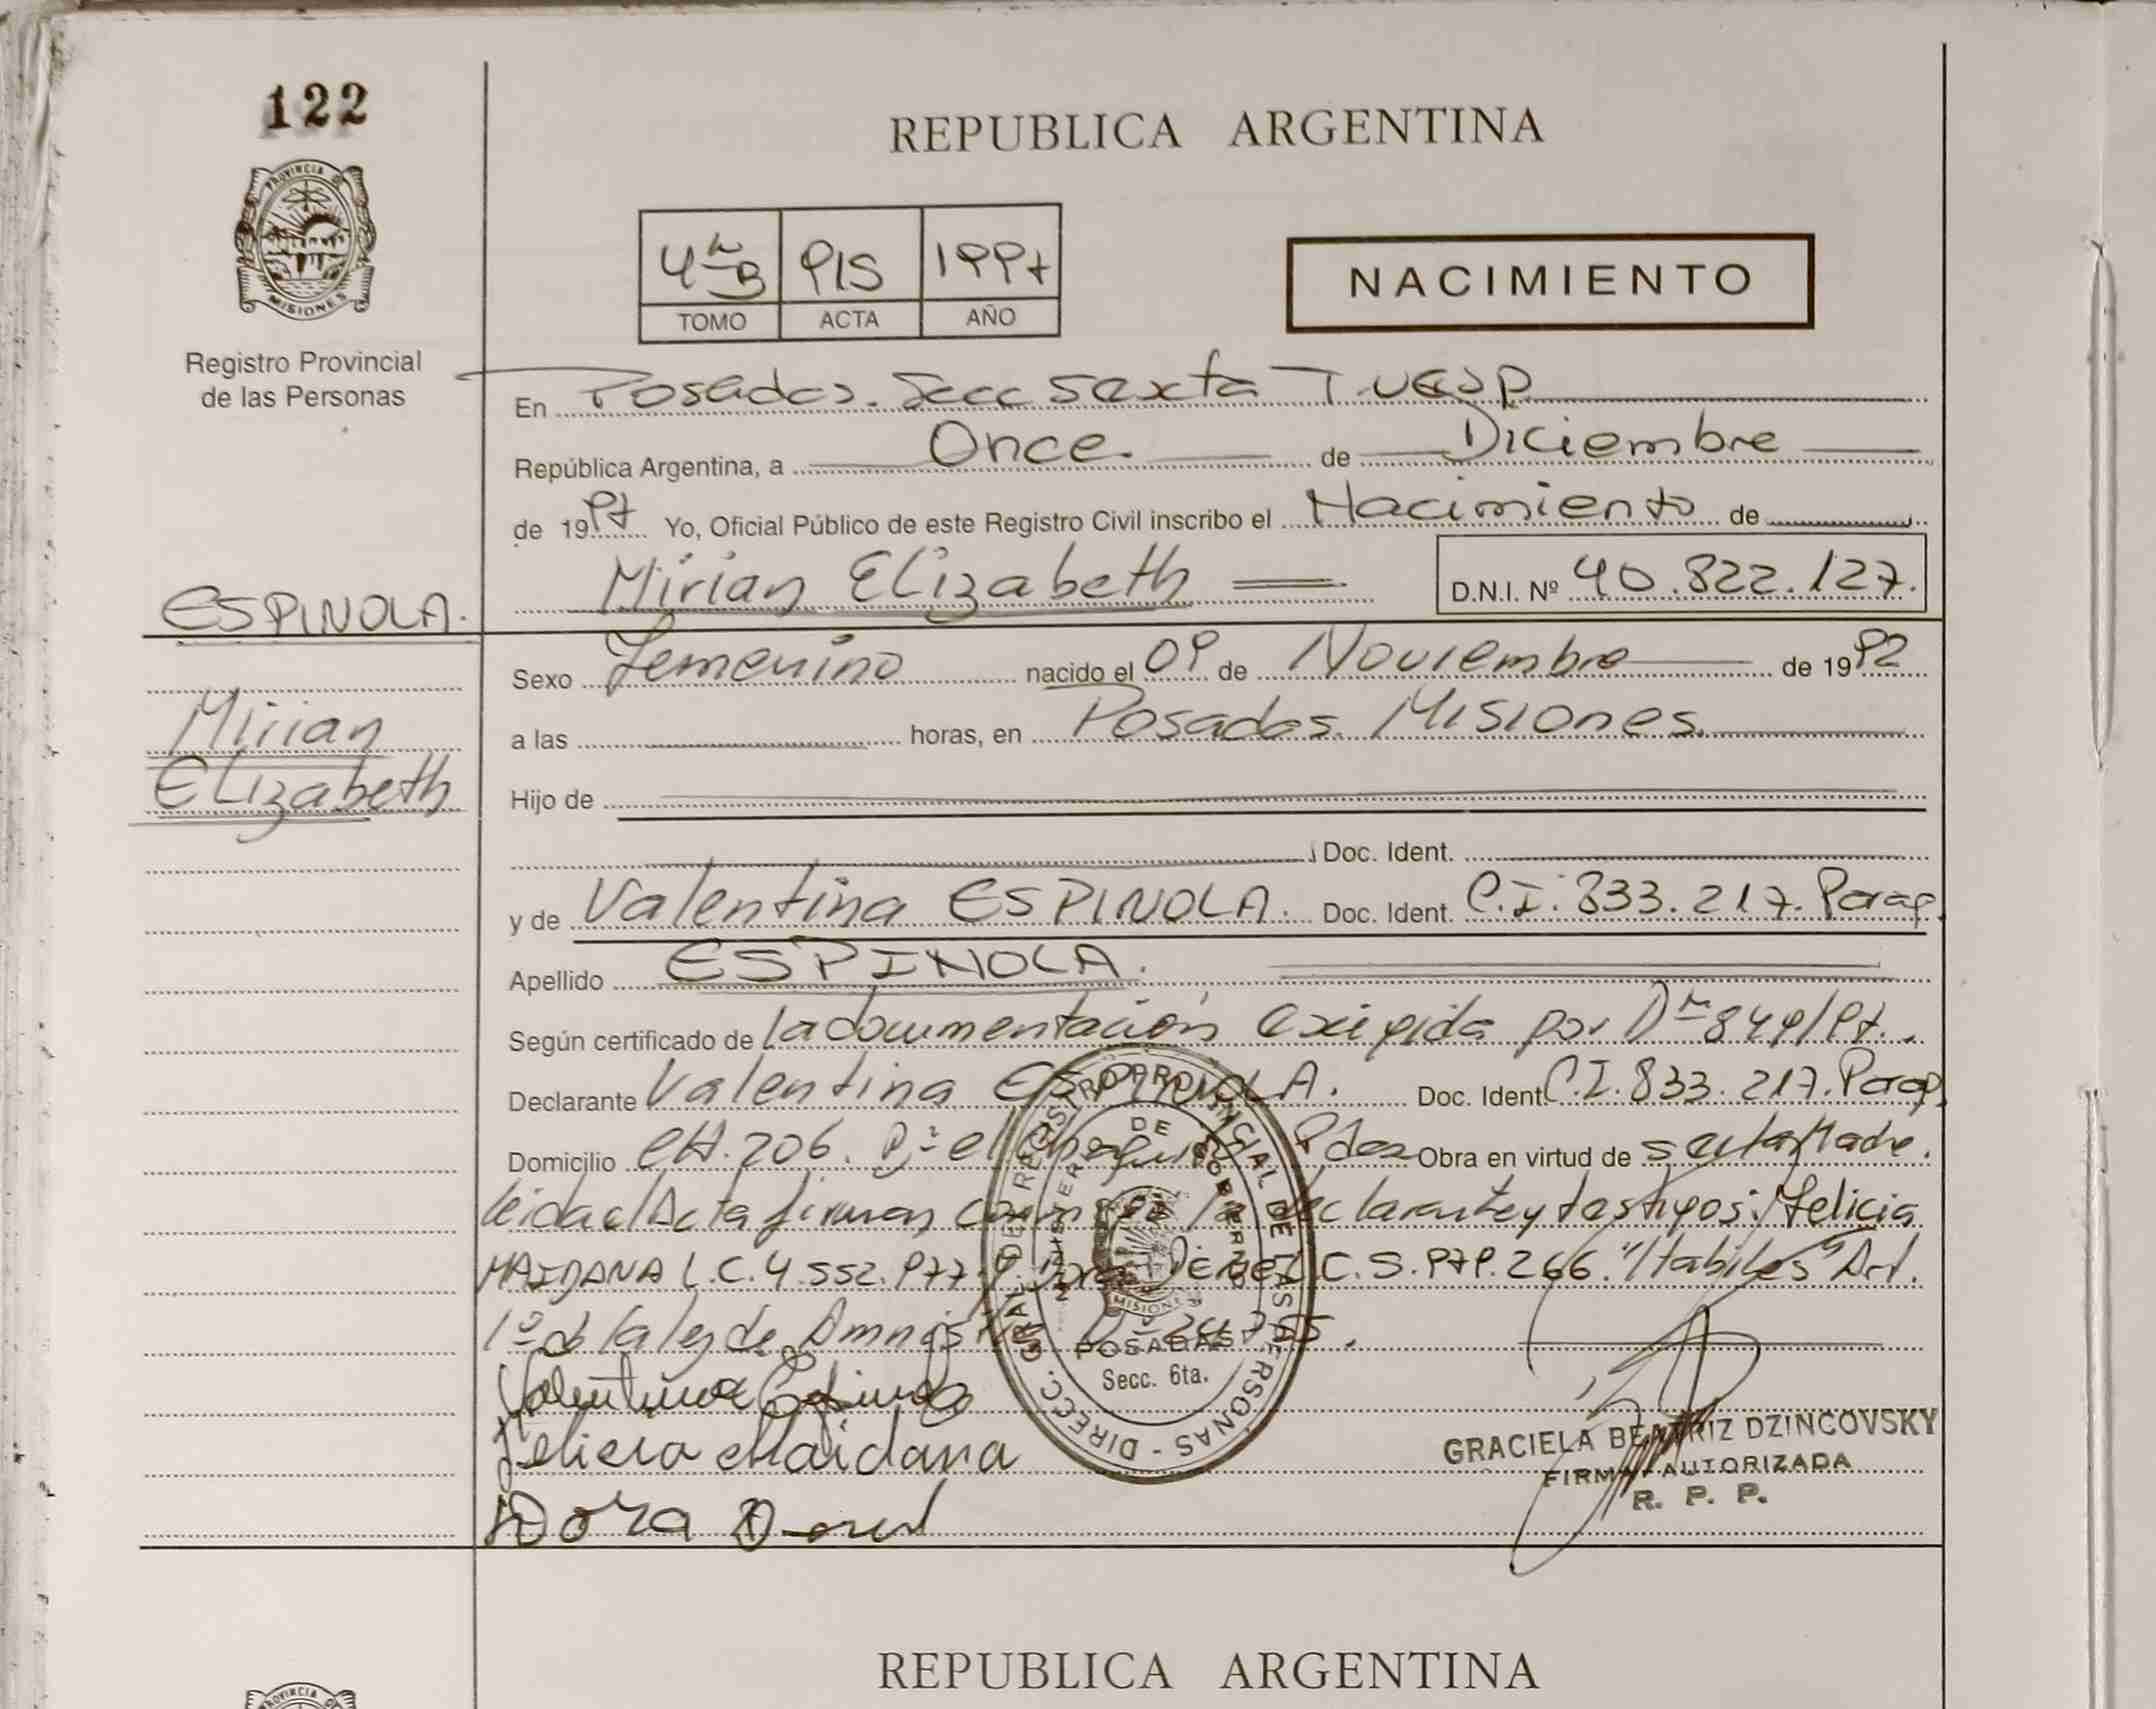 122
REPUBLICA ARGENTINA
PROVINCIA DE
MISIONES
Registro Provincial
de las Personas
4º B 915 1997
TOMO ACTA AÑO
NACIMIENTO
En Posadas. Secc Sexta
República Argentina, a Once. de Diciembre
de 1997 Yo, Oficial Público de este Registro Civil inscribo el Nacimiento de
Mirian Elizabeth D.N.I. Nº 40.822.127.
ESPINOLA.
Mirian
Elizabeth
Sexo Femenino nacido el 09 de Noviembre de 1992
a las horas, en Posadas. Misiones.
Hijo de
Doc. Ident.
y de Valentina ESPINOLA. Doc. Ident. C.I. 833.217. Parag.
Apellido ESPINOLA.
Según certificado de la documentación exigida por Dº 849/97.
Declarante Valentina ESPINOLA. Doc. Ident. C.I. 833.217. Parag.
Domicilio CH. 206. Pdas Obra en virtud de ser la Madre.
leida el Acta firman conmigo la declarante y testigos: Felicia
MAIDANA L.C. 4.552.977. y Dora L.C. 5.979.266. "Habiles" Art.
1º de la ley de Amnistia
Valentina Espinola
Felicia Maidana
Dora
DIRECC. GRAL. DEL REGISTRO PROVINCIAL DE LAS PERSONAS
MINISTERIO DE GOBIERNO
MISIONES
POSADAS
Secc. 6ta.
GRACIELA BEATRIZ DZINCOVSKY
FIRMA AUTORIZADA
R. P. P.
REPUBLICA ARGENTINA
PROVINCIA